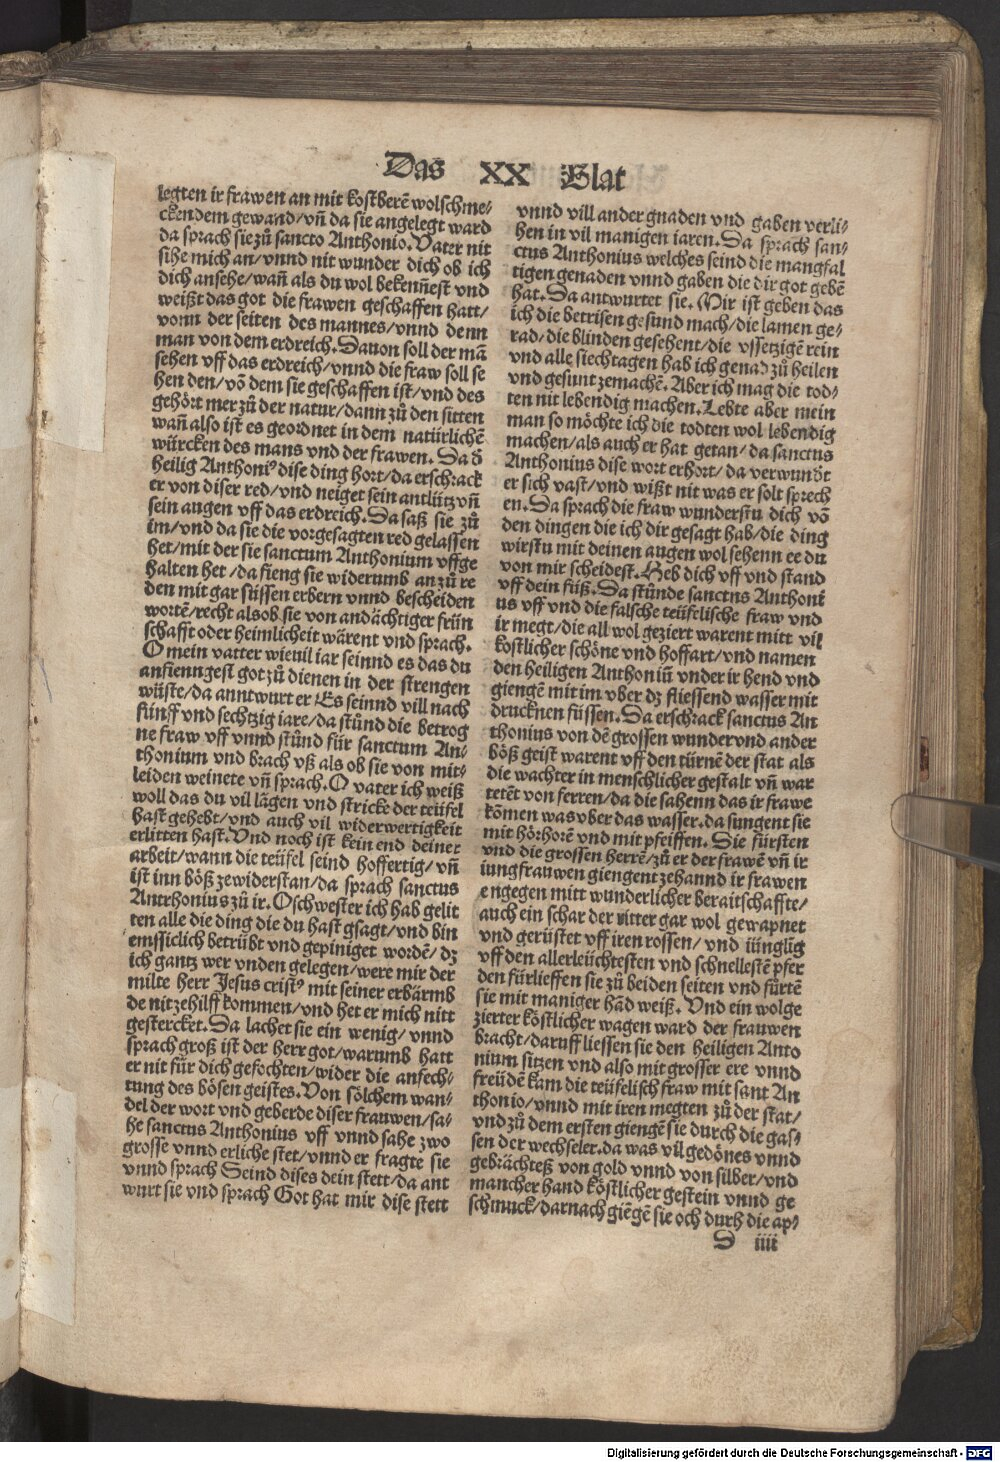 Das XX Blat
legten ir frawen an mit kostberē wolschme/
ckendem gewand/vn̄ da sie angelegt ward
da sprach sie zů sancto Anthonio. Vater nit
sihe mich an/vnnd nit wunder dich ob ich
dich ansehe/wan̄ als du wol bekennest vnd
weißt das got die frawen geschaffen hatt/
vonn der seiten des mannes/vnnd denn
man von dem erdreich. Dauon soll der mā
sehen vff das erdreich/vnnd die fraw soll se
hen den/vō dem sie geschaffen ist/vnd des
gehört mer zů der natur/dann zů den sitten
wan̄ also ist es geordnet in dem natürlichē
würcken des mans vnd der frawen. Da d̄
heilig Anthoniꝰ dise ding hort/da erschrack
er von diser red/vnd neiget sein antlütz vn̄
sein augen vff das erdreich. Da saß sie zů
im/vnd da sie die vorgesagten red gelassen
het/mit der sie sanctum Anthonium vffge
halten het/da fieng sie widerumb an zů re
den mit gar süssen erbern vnnd bescheiden
wortē/recht als ob sie von andächtiger frün
schafft oder heimlicheit wärent vnd sprach.
O mein vatter wieuil iar seinnd es das du
anfienngest got zů dienen in der strengen
wüste/da anntwurt er Es seinnd vill nach
fünff vnd sechtzig iare/da stůnd die betrog
ne fraw vff vnnd stůnd für sanctum An/
thonium vnd brach vß als ob sie von mit/
leiden weinete vn̄ sprach. O vater ich weiß
woll das du vil lāgen vnd stricke der teüfel
hast gehebt/vnd auch vil widerwertigkeit
erlitten hast. Vnd noch ist kein end deiner
arbeit/wann die teüfel seind hoffertig/vn̄
ist inn böß zewiderstan/da sprach sanctus
Antrhonius zů ir. O schwester ich hab gelit
ten alle die ding die du hast gsagt/vnd bin
emssiclich betrübt vnd gepiniget wordē/dz
ich gantz wer vnden gelegen/were mir der
milte herr Jesus cristꝰ mit seiner erbärmb
de nit zehilff kommen/vnd het er mich nitt
gestercket. Da lachet sie ein wenig/vnnd
sprach groß ist der herr got/warumb hatt
er nit für dich gefochten/wider die anfech/
tung des bösen geistes. Von sölchem wan/
del der wort vnd geberde diser frauwen/sa/
he sanctus Anthonius vff vnnd sahe zwo
grosse vnnd erliche stet/vnnd er fragte sie
vnnd sprach Seind dises dein stett/da ant
wurt sie vnd sprach Got hat mir dise stett
vnnd vill ander gnaden vnd gaben verli/
hen in vil manigen iaren. Da sprach san/
ctus Anthonius welches seind die mangfal
tigen genaden vnnd gaben die dir got gebē
hat. Da antwurtet sie. Mir ist geben das
ich die betrisen gesund mach/die lamen ge/
rad/die blinden gesehent/die vssetzigē rein
vnd alle siechtagen hab ich genad zů heilen
vnd gesunt zemachē. Aber ich mag die tod/
ten nit lebendig machen. Lebte aber mein
man so möchte ich die todten wol lebendig
machen/als auch er hat getan/da sanctus
Anthonius dise wort erhort/da verwundt
er sich vast/vnd wißt nit was er solt sprech
en. Da sprach die fraw wunderstu dich vō
den dingen die ich dir gesagt hab/die ding
wirstu mit deinen augen wol sehenn ee du
von mir scheidest. Heb dich vff vnd stand
vff dein füß. Da stůnde sanctus Anthoni
us vff vnd die falsche teüfelische fraw vnd
ir megt/die all wol geziert warent mitt vil
kostlicher schöne vnd hoffart/vnd namen
den heiligen Anthoniū vnder ir hend vnd
giengē mit im vber dz fliessend wasser mit
drucknen füssen. Da erschrack sanctus An
thonius von dē grossen wunder vnd ander
böß geist warent vff den türnē der stat als
die wachter in menschlicher gestalt vn̄ war
tetēt von ferren/da die sahenn das ir frawe
kōmen was vber das wasser. da sungent sie
mit hörhorē vnd mit pfeiffen. Die fürsten
vnd die grossen herrē/zů er der frawē vn̄ ir
iungfrauwen giengent zehannd ir frawen
engegen mitt wunderlicher beraitschaffte/
auch ein schar der ritter gar wol gewapnet
vnd gerüstet vff iren rossen/vnd iüngling
vff den allerleüchtesten vnd schnellestē pfer
den fürlieffen sie zů beiden seiten vnd fürtē
sie mit maniger hād weiß. Vnd ein wolge
zierter köstlicher wagen ward der frauwen
bracht/daruff liessen sie den heiligen Anto
nium sitzen vnd also mit grosser ere vnnd
freüdē kam die teüfelisch fraw mit sant An
thonio/vnnd mit iren megten zů der stat/
vnd zů dem ersten giengē sie durch die gas/
sen der wechseler. da was vil gedönes vnnd
gebrächteß von gold vnnd von silber/vnd
mancher hand köstlicher gestein vnnd ge
schmuck/darnach giēgē sie och durh die ap/
D iiii
Digitalisierung gefördert durch die Deutsche Forschungsgemeinschaft - DFG